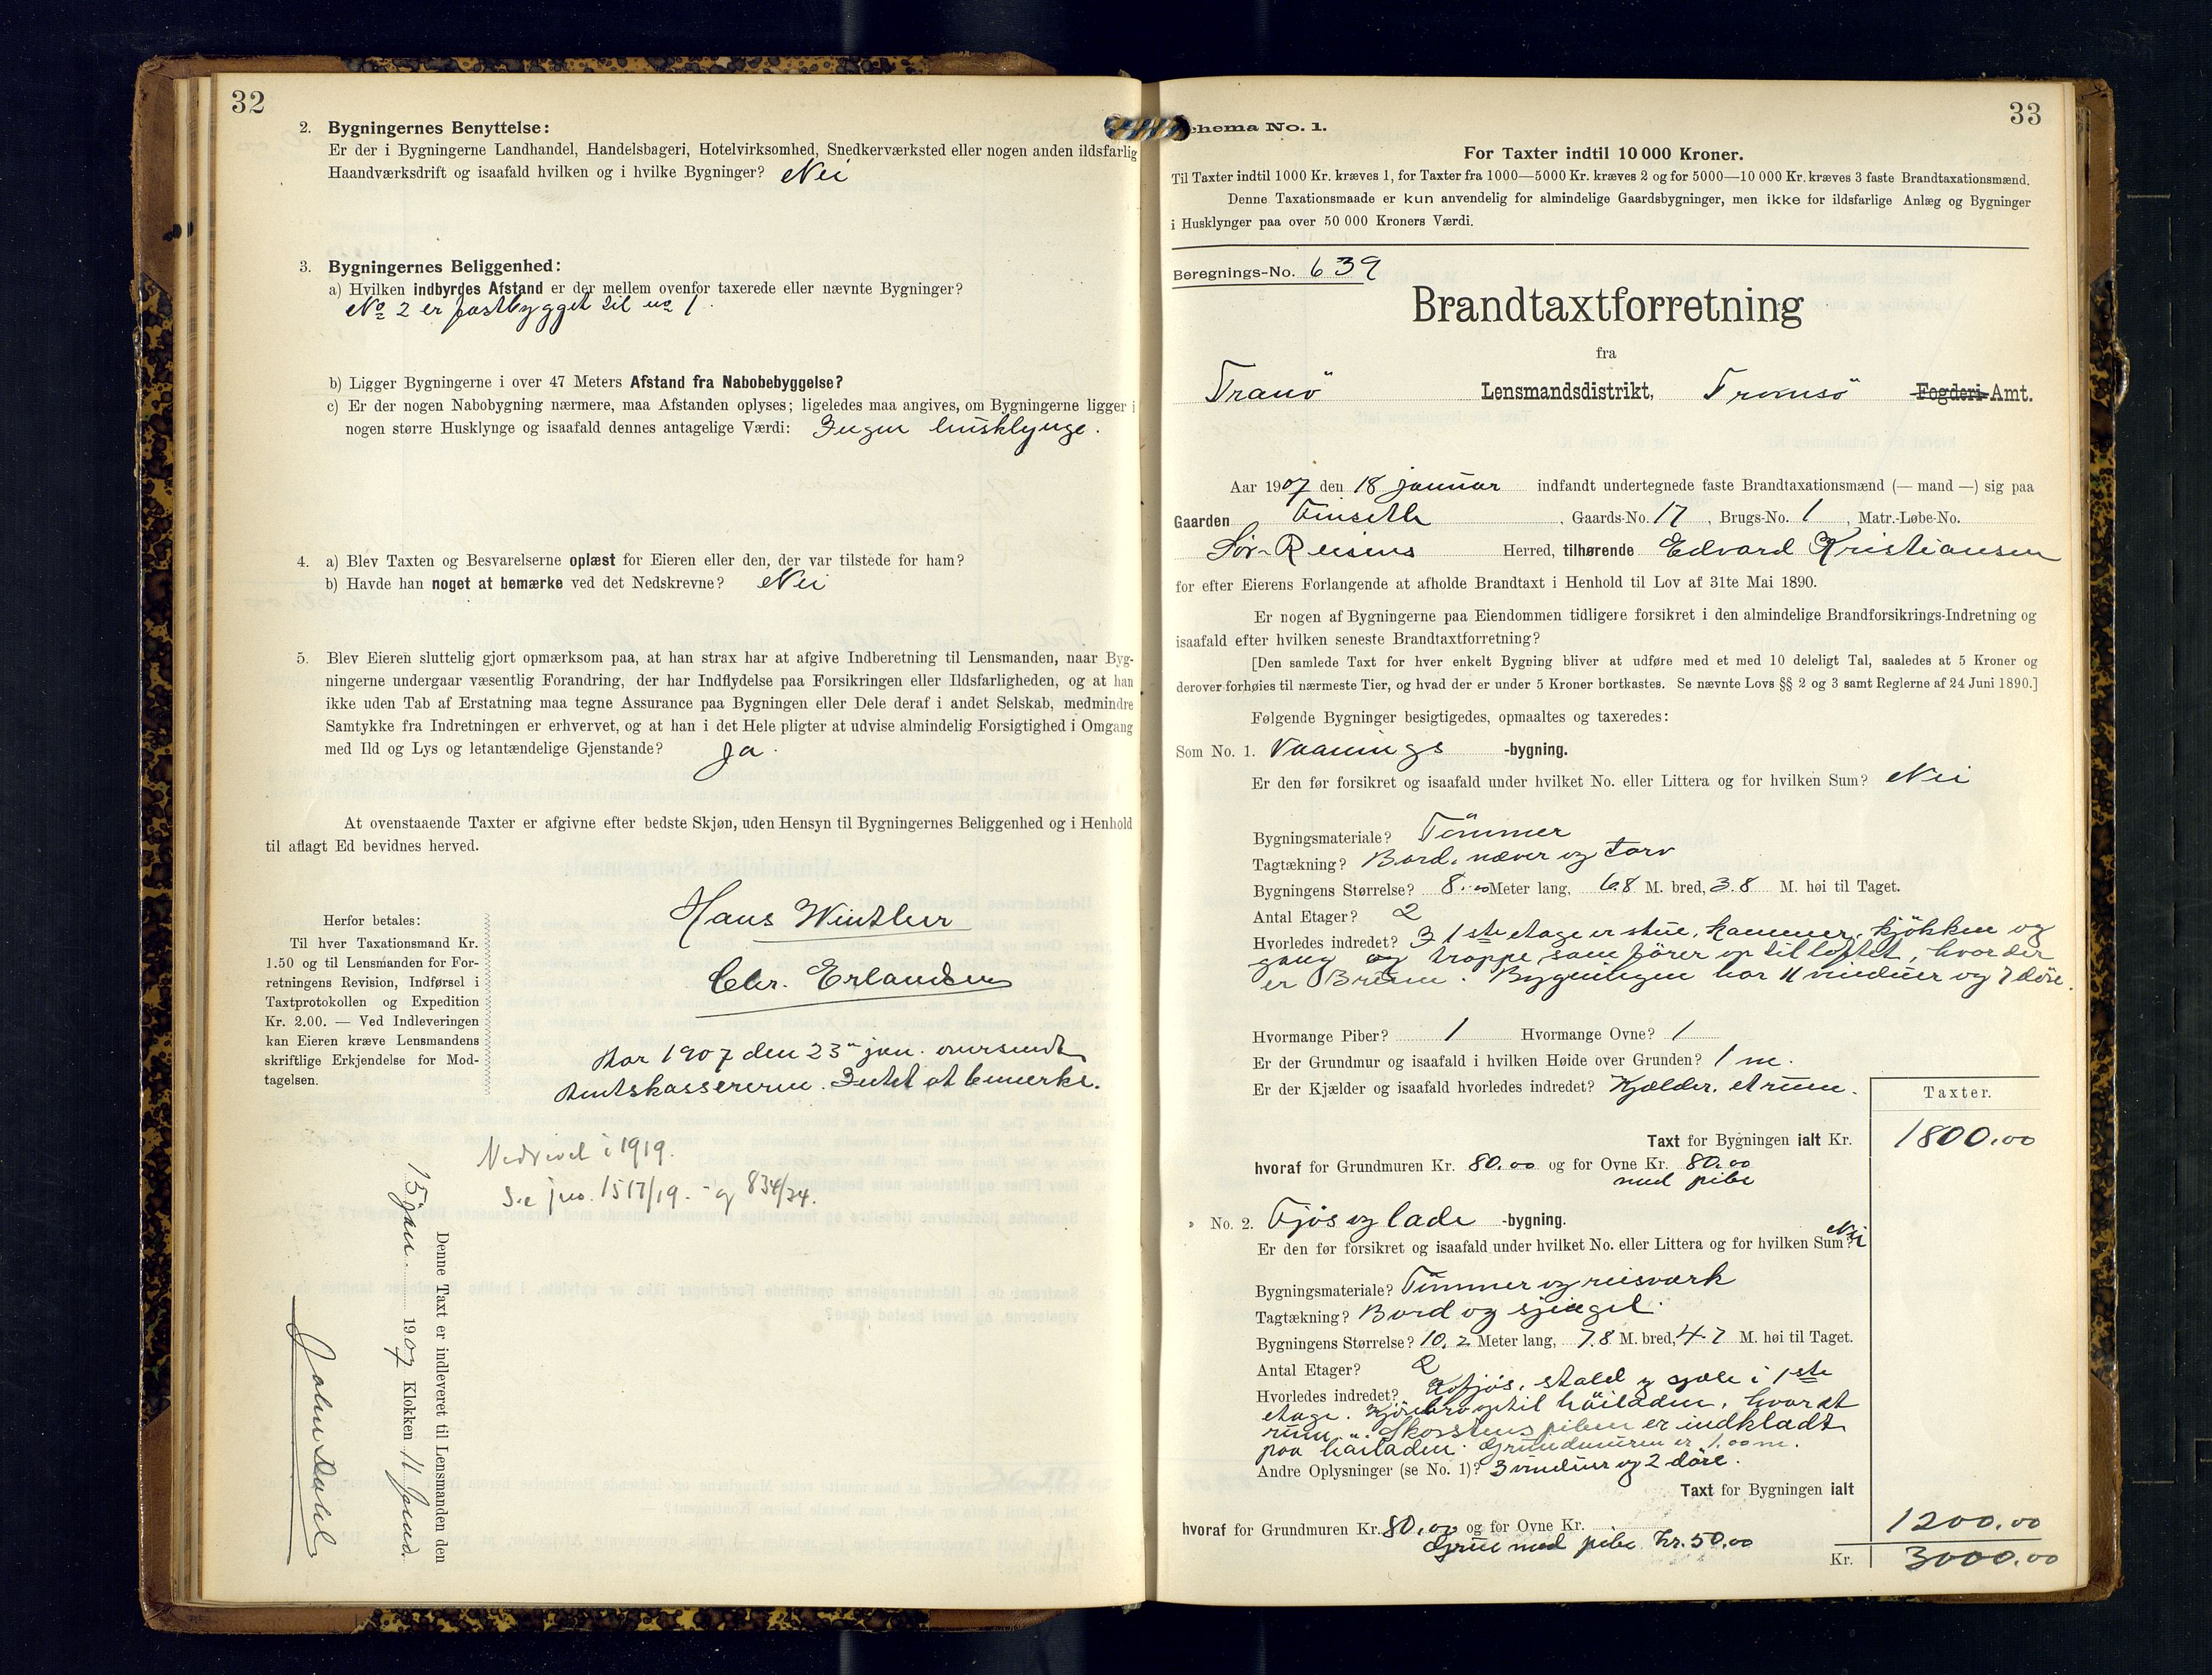 32
2. Bygningernes Benyttelse:
Er der i Bygningerne Landhandel, Handelsbageri, Hotelvirksomhed, Snedkerværksted eller nogen anden ildsfarlig
Haandværksdrift og isaafald hvilken og i hvilke Bygninger? Nei
3. Bygningernes Beliggenhed:
a) Hvilken indbyrdes Afstand er der mellem ovenfor taxerede eller nævnte Bygninger?
No 2 er fastbygget til no 1.
b) Ligger Bygningerne i over 47 Meters Afstand fra Nabobebyggelse?
c) Er der nogen Nabobygning nærmere, maa Afstanden oplyses; ligeledes maa angives, om Bygningerne ligger i
nogen større Husklynge og isaafald dennes antagelige Værdi: Ingen husklynge.
4. a) Blev Taxten og Besvarelserne oplæst for Eieren eller den, der var tilstede for ham?
b) Havde han noget at bemærke ved det Nedskrevne? Nei
5. Blev Eieren sluttelig gjort opmærksom paa, at han strax har at afgive Indberetning til Lensmanden, naar Byg-
ningerne undergaar væsentlig Forandring, der har Indflydelse paa Forsikringen eller Ildsfarligheden, og at han
ikke uden Tab af Erstatning maa tegne Assurance paa Bygningen eller Dele deraf i andet Selskab, medmindre
Samtykke fra Indretningen er erhvervet, og at han i det Hele pligter at udvise almindelig Forsigtighed i Omgang
med Ild og Lys og letantændelige Gjenstande? Ja.
At ovenstaaende Taxter er afgivne efter bedste Skjøn, uden Hensyn til Bygningernes Beliggenhed og i Henhold
til aflagt Ed bevidnes herved.
Hans Winther
Chr. Erlandsen
Herfor betales:
Til hver Taxationsmand Kr.
1.50 og til Lensmanden for For-
retningens Revision, Indførsel i
Taxtprotokollen og Expedition
Kr. 2.00. — Ved Indleveringen
kan Eieren kræve Lensmandens
skriftlige Erkjendelse for Mod-
tagelsen.
Aar 1907 den 23 jan. oversendt
Amtskassereren. Intet at bemerke.
Nedrevet i 1919.
Se jno. 1517/19. og 834/24.
Denne Taxt er indleveret til Lensmanden den
15 jan. 1907 Klokken 11 formd.
John Dahl
33
Schema No. 1.
For Taxter indtil 10 000 Kroner.
Til Taxter indtil 1000 Kr. kræves 1, for Taxter fra 1000—5000 Kr. kræves 2 og for 5000—10 000 Kr. kræves 3 faste Brandtaxationsmænd.
Denne Taxationsmaade er kun anvendelig for almindelige Gaardsbygninger, men ikke for ildsfarlige Anlæg og Bygninger
i Husklynger paa over 50 000 Kroners Værdi.
Beregnings-No. 639
Brandtaxtforretning
fra
Tranö Lensmandsdistrikt, Tromsö Fogderi-Amt.
Aar 1907 den 18 januar indfandt undertegnede faste Brandtaxationsmænd (— mand —) sig paa
Gaarden Finseth, Gaards-No. 17, Brugs-No. 1, Matr.-Løbe-No.
Sør-Reisens Herred, tilhørende Edvard Kristiansen
for efter Eierens Forlangende at afholde Brandtaxt i Henhold til Lov af 31te Mai 1890.
Er nogen af Bygningerne paa Eiendommen tidligere forsikret i den almindelige Brandforsikrings-Indretning og
isaafald efter hvilken seneste Brandtaxtforretning?
[Den samlede Taxt for hver enkelt Bygning bliver at udføre med et med 10 deleligt Tal, saaledes at 5 Kroner og
derover forhøies til nærmeste Tier, og hvad der er under 5 Kroner bortkastes. Se nævnte Lovs §§ 2 og 3 samt Reglerne af 24 Juni 1890.]
Følgende Bygninger besigtigedes, opmaaltes og taxeredes:
Som No. 1. Vaanings -bygning.
Er den før forsikret og isaafald under hvilket No. eller Littera og for hvilken Sum? Nei
Bygningsmateriale? Tömmer
Tagtækning? Bord, næver og torv
Bygningens Størrelse? 8.00 Meter lang, 6.8 M. bred, 3.8 M. høi til Taget.
Antal Etager? 2
Hvorledes indredet? I 1ste etage er stue, kammer, kjökken og
gang og trappe som förer op til loftet, hvor der
er 3 rum. Bygningen har 11 vinduer og 7 döre.
Hvormange Piber? 1 Hvormange Ovne? 1
Er der Grundmur og isaafald i hvilken Høide over Grunden? 1 m.
Er der Kjælder og isaafald hvorledes indredet? Kjælder, et rum.
Taxter.
Taxt for Bygningen ialt Kr. 1800.00
hvoraf for Grundmuren Kr. 80.00 og for Ovne Kr. 80.00
med pibe
No. 2. Fjös og lade -bygning.
Er den før forsikret og isaafald under hvilket No. eller Littera og for hvilken Sum? Nei
Bygningsmateriale? Tömmer og reisværk
Tagtækning? Bord og sjingel.
Bygningens Størrelse? 10.2 Meter lang, 7.8 M. bred, 4.7 M. høi til Taget.
Antal Etager? 2
Hvorledes indredet? Kofjös, stald og sjæle i 1ste
etage. Kjörebro op til höiladen, hvor et
rum. Skorstens piben er indkladt
paa höiladen. Grundmuren er 1.00 m.
Andre Oplysninger (se No. 1)? 3 vinduer og 2 döre.
Taxt for Bygningen ialt
hvoraf for Grundmuren Kr. 80.00 og for Ovne Kr. 1200.00
Grue med pibe Kr. 50.00
Kr. 3000.00